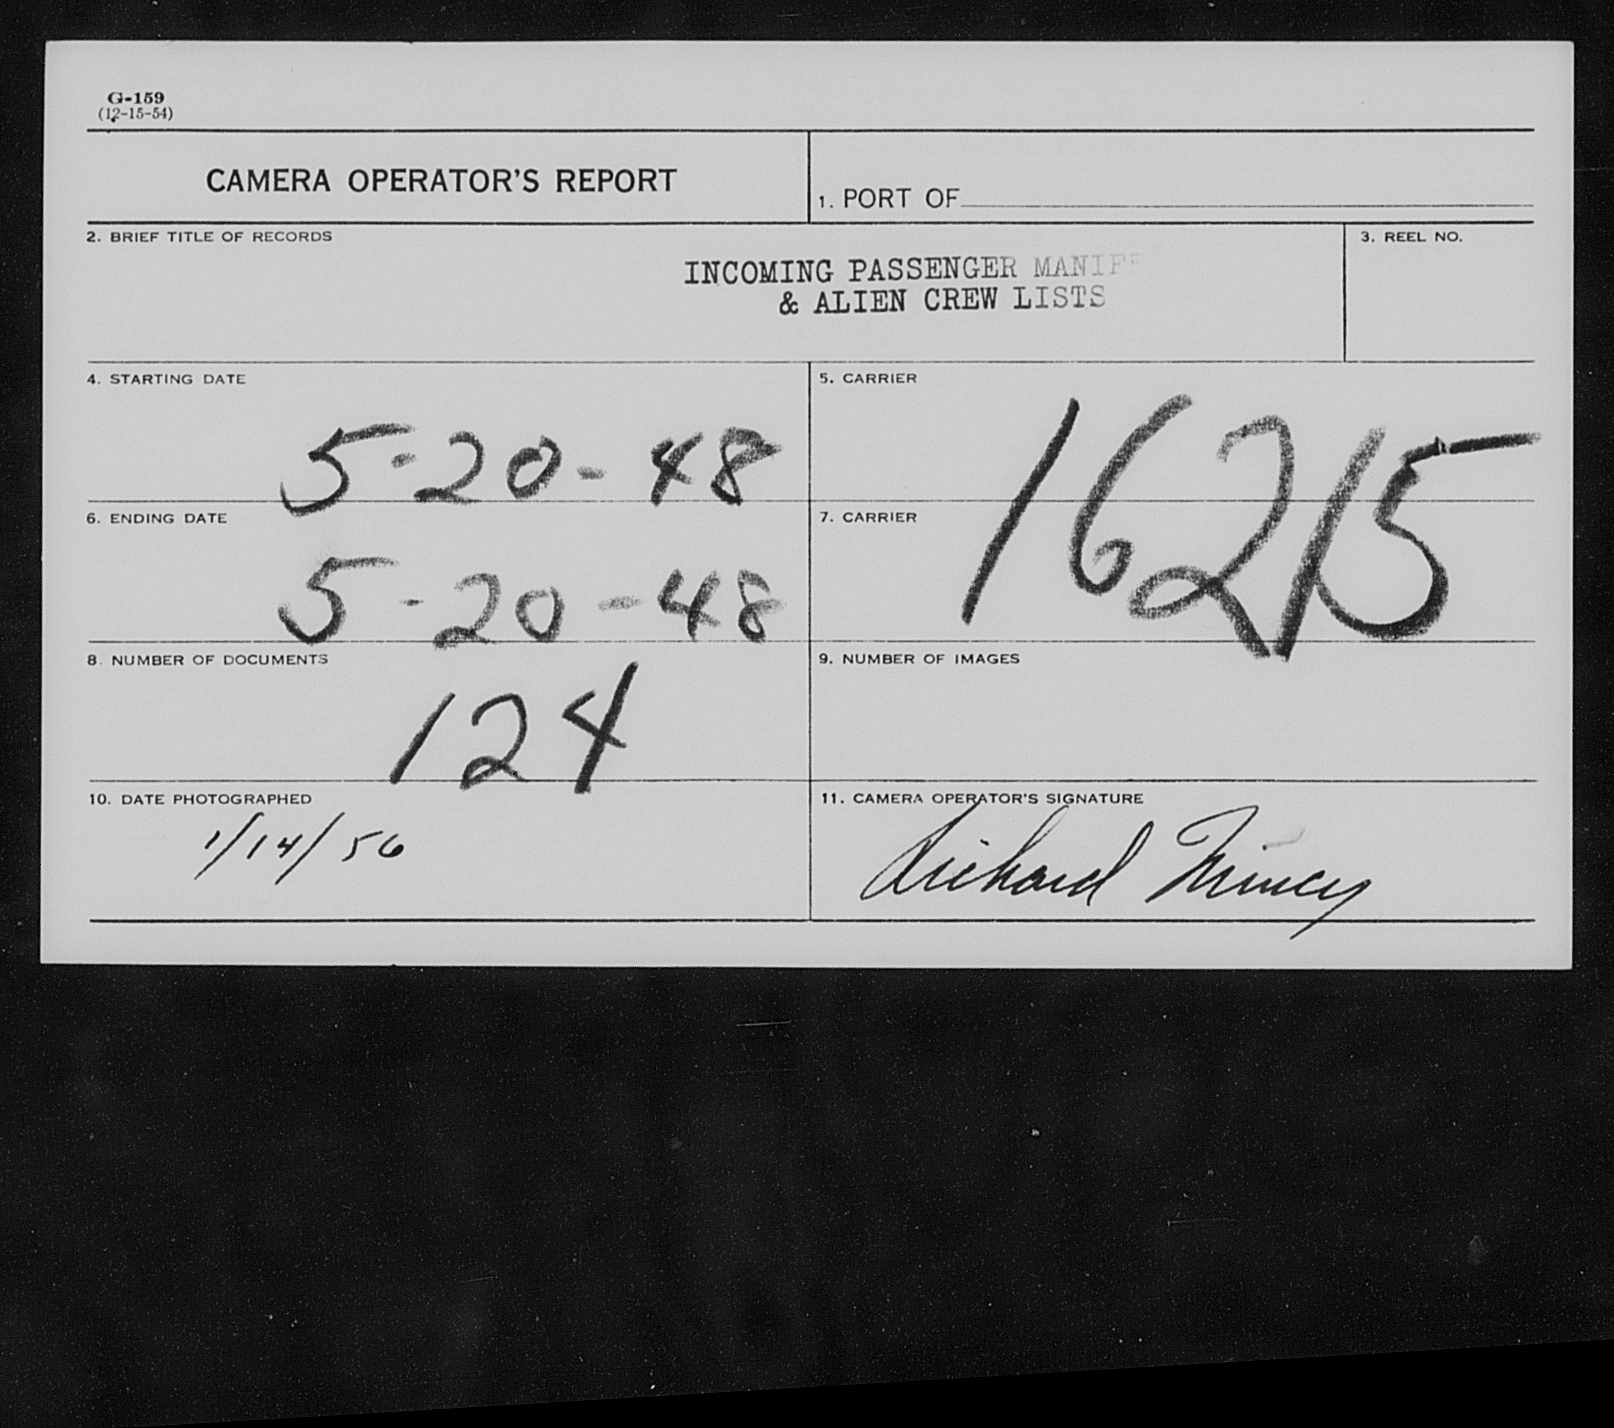 G-159
(12-15-54)
CAMERA OPERATOR'S REPORT
1. PORT OF
2. BRIEF TITLE OF RECORDS
3. REEL NO.
INCOMING PASSENGER MANIF
& ALIEN CREW LISTS
4. STARTING DATE
5-20-48
5. CARRIER
16215
6. ENDING DATE
5-20-48
7. CARRIER
8. NUMBER OF DOCUMENTS
124
9. NUMBER OF IMAGES
10. DATE PHOTOGRAPHED
1/14/56
11. CAMERA OPERATOR'S SIGNATURE
Richard